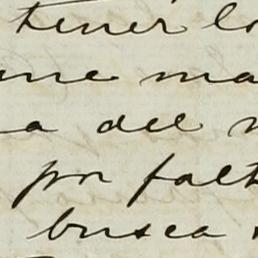 tener lo
me ma
a del
por falt
busca